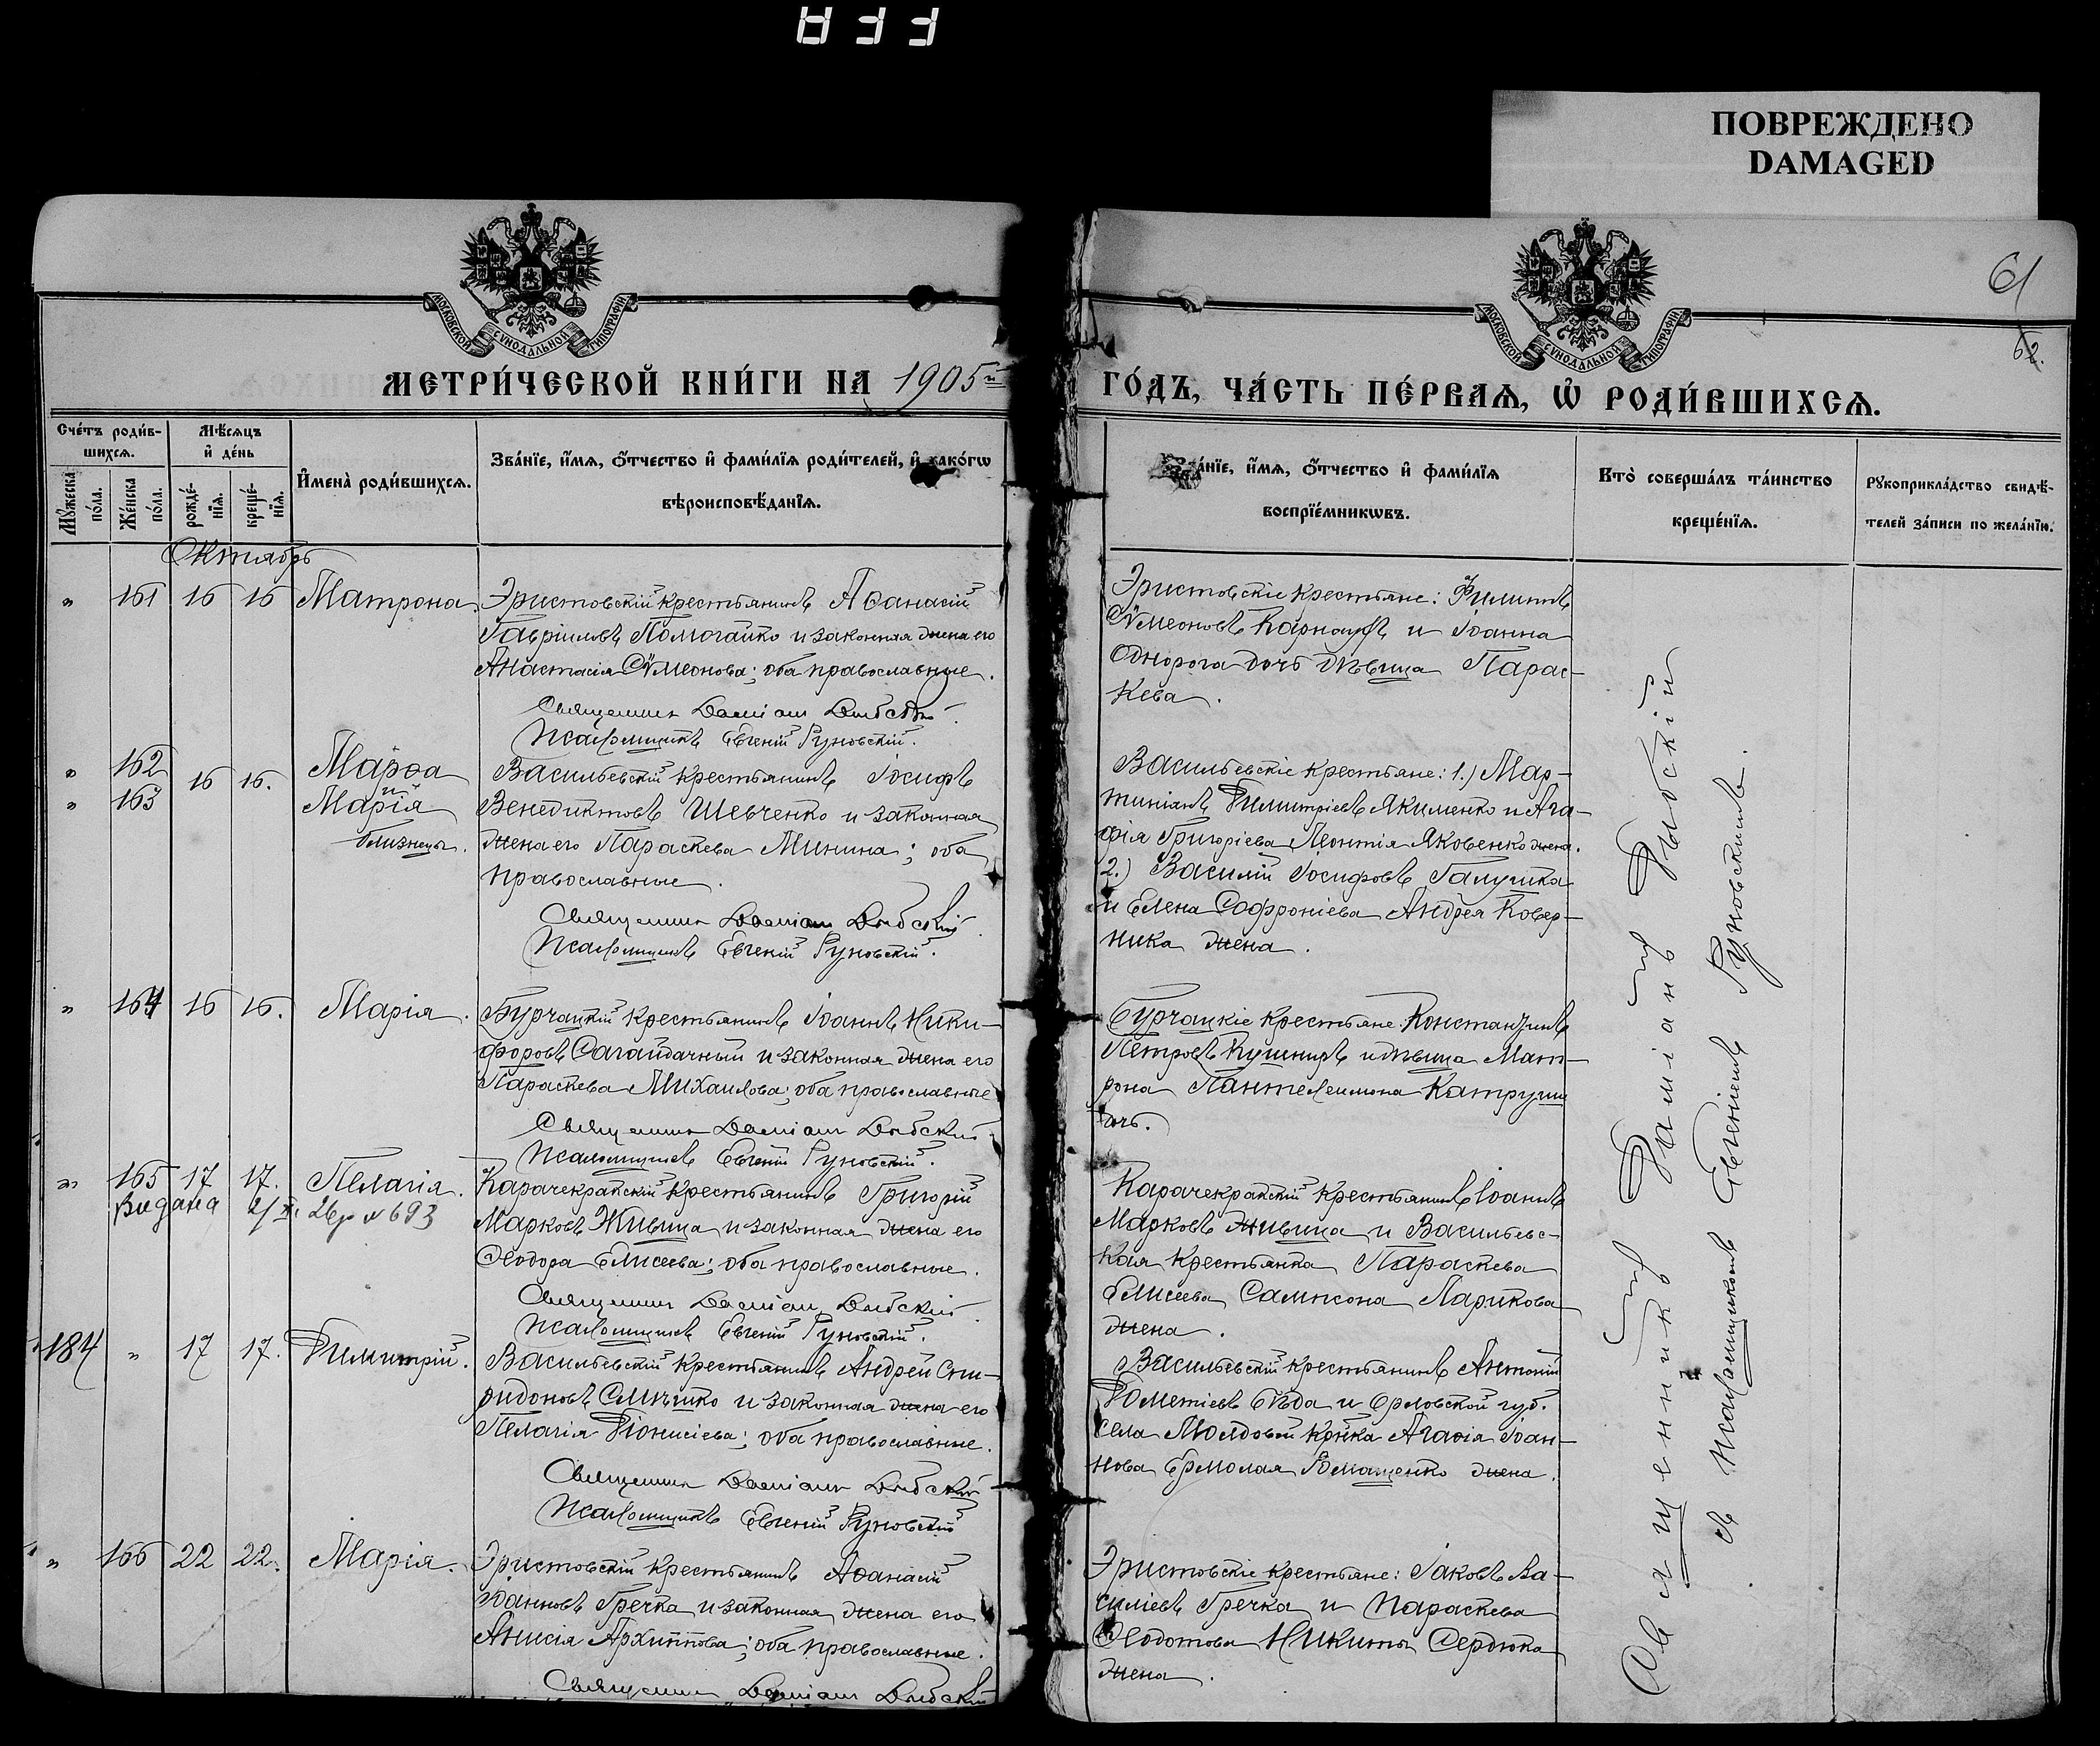 ПОВРЕЖДЕНО
DAMAGED
61
62.
МОСКОВСКОЙ СѴНОДАЛЬНОЙ ТИПОГРАФІИ
МОСКОВСКОЙ СѴНОДАЛЬНОЙ ТИПОГРАФІИ
МЕТРИ́ЧЕСКОЙ КНИ́ГИ НА 1905й ГО́ДЪ, ЧА́СТЬ ПЕ́РВАѦ, Ѡ҆ РОДИ́ВШИХСѦ.
Сче́тъ роди́вшихсѧ.
Мѣ́сѧцъ и҆ де́нь
Мꙋ́жеска по́ла.
Же́нска по́ла.
рожде́нїѧ.
креще́нїѧ.
И҆мена̀ роди́вшихсѧ.
Зва́нїе, и҆́мѧ, ѻ҆́тчество и҆ фами́лїѧ роди́телей, и҆ како́гѡ
вѣроисповѣ́данїѧ.
Зва́нїе, и҆́мѧ, ѻ҆́тчество и҆ фами́лїѧ
воспрїе́мникѡвъ.
Кто̀ соверша́лъ та́инство
креще́нїѧ.
Рꙋкоприкла́дство свидѣ́-
телей за́писи по жела́нїю.
Октябрь
" 161 16 16 Матрона
Эристовскій крестьянинъ Аѳанасій
Гавріиловъ Помогайко и законная жена его
Анастасія Сѵмеонова; оба православные.
Священник Дамиан Дыбский.
Псаломщикъ Евгеній Руновскій.
Эристовскіе крестьяне: Филиппъ
Сѵмеоновъ Карнаухъ и Іоанна
Однорога дочь дѣвица Парас-
кева.
" 162
" 163
16 16. Марѳа
и
Марія
близнецы.
Васильевскій крестьянинъ Іосифъ
Венедиктовъ Шевченко и законная
жена его Параскева Минина; оба
православные.
Священник Дамиан Дыбский.
Псаломщикъ Евгеній Руновскій.
Васильевскіе крестьяне: 1.) Мар-
тиніанъ Димитріевъ Якименко и Ага-
фія Григоріева Леонтія Яковенко жена.
2.) Василій Іосифовъ Галушка
и Елена Софроніева Андрея Ковер-
ника жена.
" 164 16 16. Марія.
Бурчацкій крестьянинъ Іоаннъ Ники-
форовъ Сагайдачный и законная жена его
Параскева Михаилова; оба православные
Священник Дамиан Дыбский
Псаломщикъ Евгеній Руновскій.
Бурчацкіе крестьяне: Константинъ
Петровъ Кушниръ и дѣвица Мат-
рона Пантелеимона Катруши
дочь.
" 165 17 17. Пелагія.
Видана 2/XI 26р № 693
Карачекракскій крестьянинъ Григорій
Марковъ Живица и законная жена его
Ѳеодора Елисеева; оба православные.
Священник Дамиан Дыбский
Псаломщикъ Евгеній Руновскій.
Карачекракскій крестьянинъ Іоаннъ
Марковъ Живица и Васильевс-
кая крестьянка Параскева
Елисеева Сампсона Ларикова
жена.
184 " 17 17. Димитрій.
Васильевскій крестьянинъ Андрей Спи-
ридоновъ и законная жена его
Пелагія Діонисіева; оба православные.
Священник Дамиан Дыбский
Псаломщикъ Евгеній Руновскій
Васильевскій крестьянинъ Антоній
Дометіевъ Бѣда и Орловской губ.
села кр-нка Агафія Іоан-
нова Ермолая Домащенко жена.
" 166 22 22. Марія.
Эристовскій крестьянинъ Аѳанасій
Іоанновъ Гречка и законная жена его
Анисія Архиппова; оба православные.
Священник Дамиан Дыбский
Эристовскіе крестьяне: Іаковъ Ва-
силіевъ Гречка и Параскева
Ѳеодотова Никиты Сердюка
жена.
Священникъ Даміанъ Дыбскій
съ псаломщикомъ Евгеніемъ Руновскимъ.